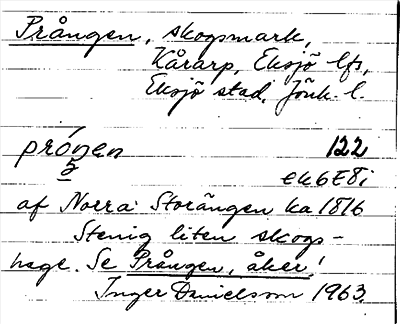 Prången, skogsmark,
Kårarp, Eksjö lfs,
Eksjö stad, Jönk. l.
122
ek6E8i
af Norra Storängen ka 1816
Stenig liten skogs-
hage. Se Prången, åker!
Inger Danielsson 1963.